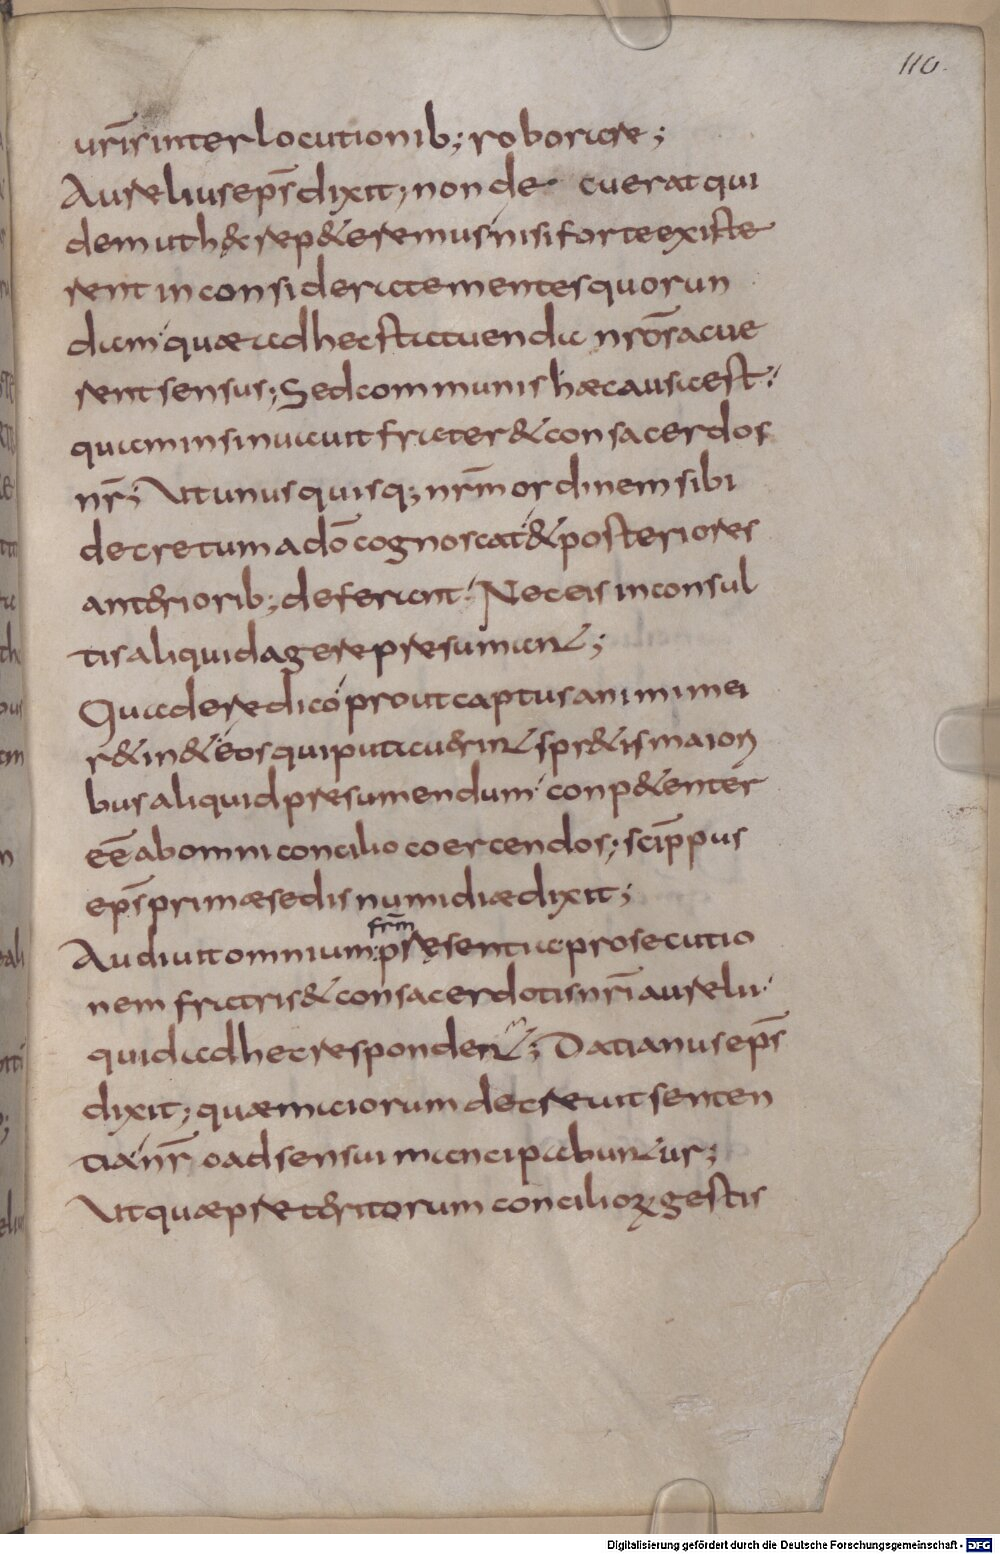 110.
urīs interlocutionib; roborare;
Aurelius ep̄s dixit; non de cuerat qui
dem ut h&c rep&eremus nisi forte existe
rent inconsiderate mentes quorun
dam quæ ad hec statuenda nr̄os acue
rent sensus; Sed communis hæc causa est.
quam insinuauit frater & consacerdos
nr̄; Ut unusquisq; nr̄m ordinem sibi
decretum a dō cognoscat & posteriores
anteriorib; deferant. Nec eis inconsul
tis aliquid agere presumant;
Quaderedico prout captus animi mei
r&in& eos qui putauerint spr&is maiori
bus aliquid presumendum conp&enter
eē ab omni concilio coercendos; scīppus
ep̄s primæ sedis numidiæ dixit;
frm̄
Audiuit omnium presentia prosecutio
nem fratris & consacerdotis nr̄i aurelii.
quid ad hec respondent; Datianus ep̄s
dixit; quæ maiorum decreuit senten
tia nr̄o adsensui mancipabuntur;
Ut quæ preteritorum conciliorꝝ gestis
Digitalisierung gefördert durch die Deutsche Forschungsgemeinschaft - DFG